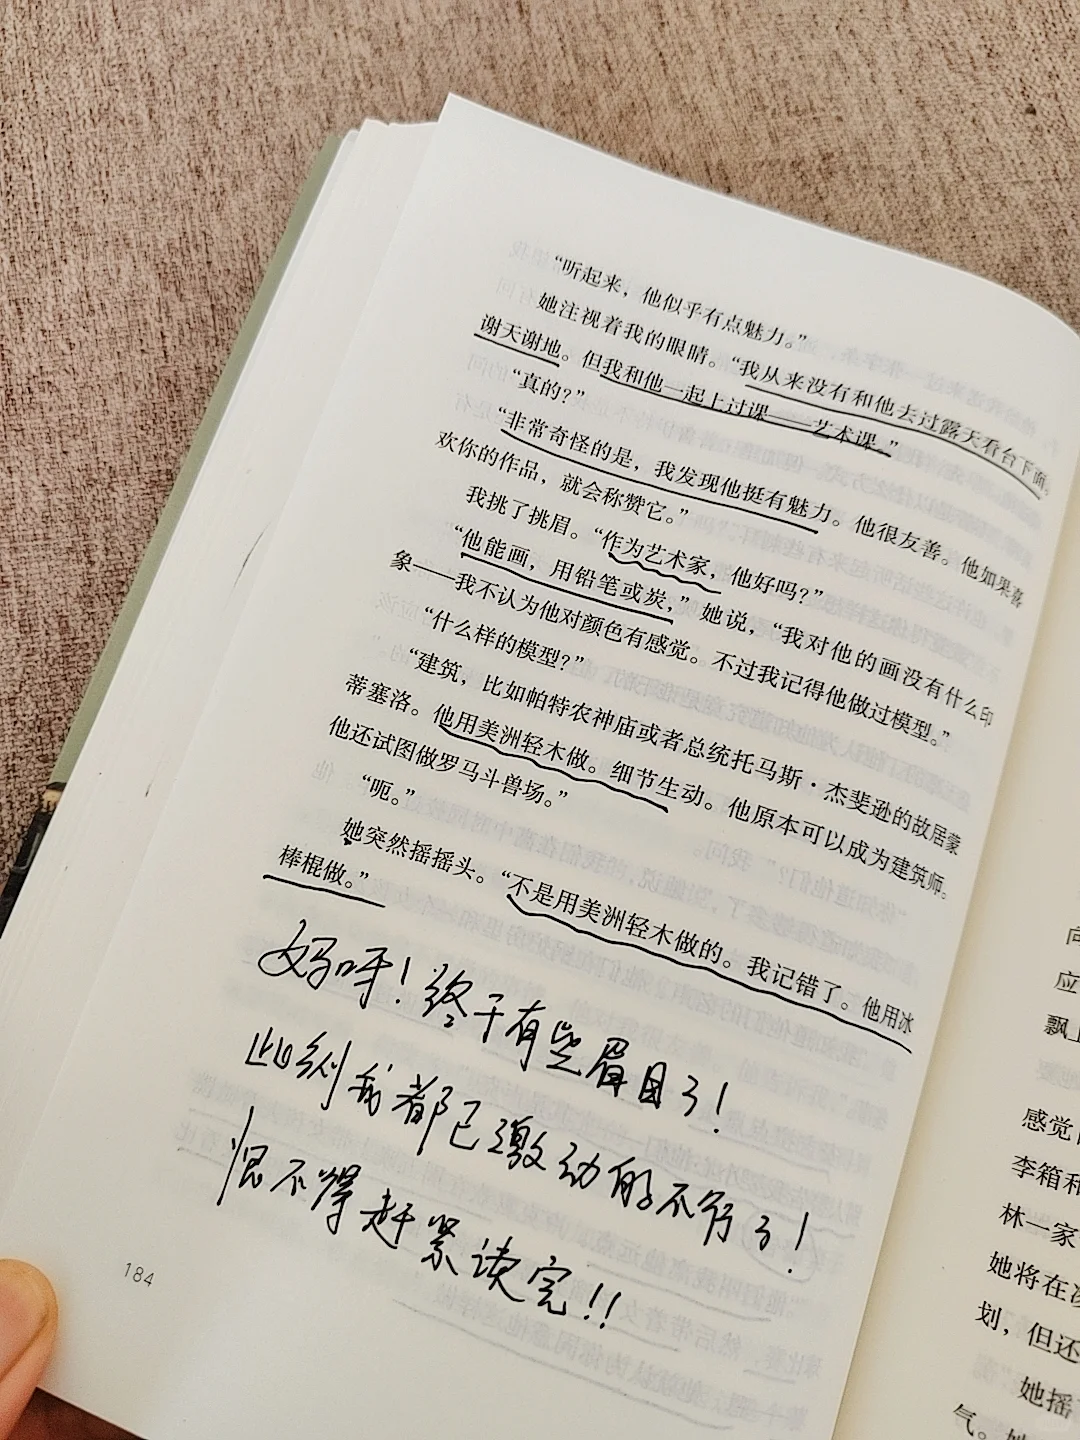 “听起来，他似乎有点魅力。”
她注视着我的眼睛。“我从来没有和他去过露天看台下面。
谢天谢地。但我和他一起上过课——艺术课。”
“真的？”
“非常奇怪的是，我发现他挺有魅力。他很友善。他如果喜
欢你的作品，就会称赞它。”
我挑了挑眉。“作为艺术家，他好吗？”
“他能画，用铅笔或炭，”她说，“我对他的画没有什么印
象——我不认为他对颜色有感觉。不过我记得他做过模型。”
“什么样的模型？”
“建筑，比如帕特农神庙或者总统托马斯·杰斐逊的故居蒙
蒂塞洛。他用美洲轻木做。细节生动。他原本可以成为建筑师。
他还试图做罗马斗兽场。”
“呃。”
她突然摇摇头。“不是用美洲轻木做的。我记错了。他用冰
棒棍做。”
妈呀！终于有些眉目了！
此刻我都已激动的不行了！
恨不得赶紧读完！！
184
向
应
飘上
感觉
李箱和
林一家
她将在
划，但还
她摇
气。她